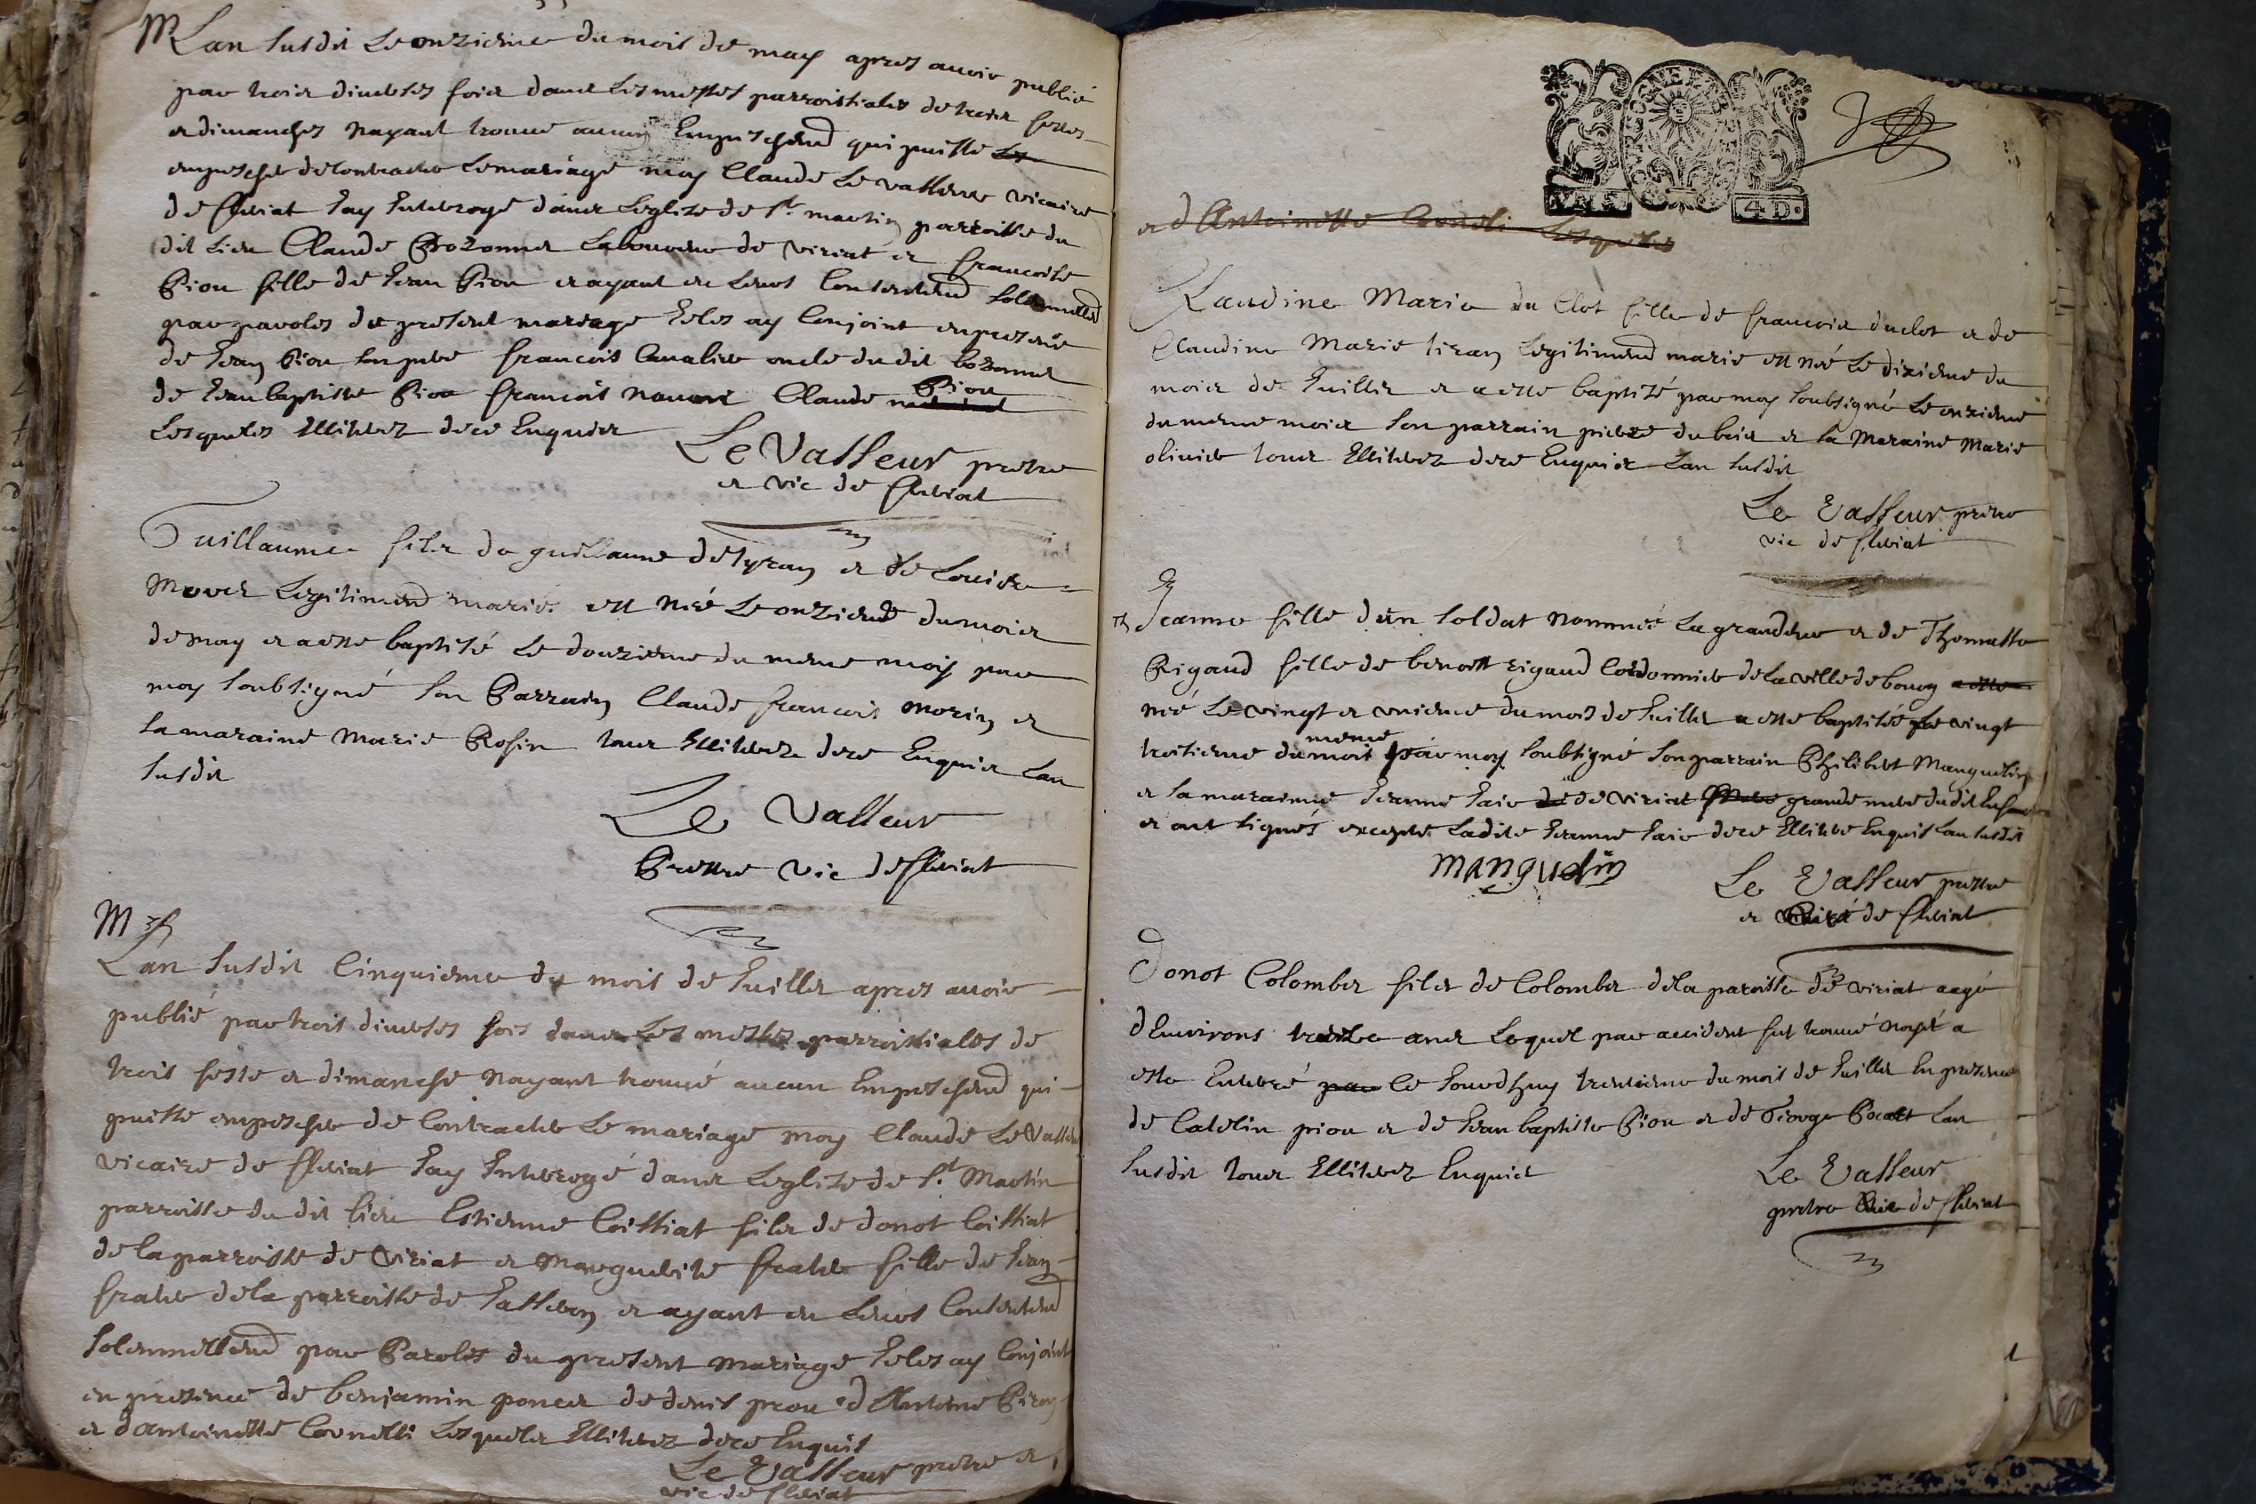 M Lan susdit Le onzieme du mois de may apres auoir publié
par trois diuerses fois dans Les messes parroissiales de trois festes
et dimanches nayant trouué aucun Empeschemt qui puisse Les
empescher de Contracter Le mariage moy Claude Le vasseur vicaire
de fleiriat Jay Interrogé dans Leglise de St martin parroisse du
dit Lieu Claude Bozonnet Laboureur de viriat et francoise
Piou fille de Jean Piou et ayant eu Leurs Consentemt Solemnellemt
par paroles de present mariage Je les ay Conjoint en presence
de Jean Piou son pere francois Cavalier oncle du dit bozonnet
de Jean baptiste Piou francois Claude Piou
Lesquels Illiterez de ce Enquis
Le Vasseur pretre
et vic de fleiriat
Guillaume fils de guillaume de tyran et de Louise
Legitimemt marié est né Le onzieme du mois
de may et a esté baptisé Le douzieme du meme mois par
moy soubsigné Son Parrain Claude francois morin et
La maraine Marie Rosin tous Illiterez de ce Enquis Lan
susdit
Le Vasseur
Prestre vic de fleiriat
M
Lan susdit Cinquieme du mois de Juillet apres auoir
publié par trois diuerses fois dans Les messes parroissiales de
trois feste et dimanche nayant trouué aucun Empeschemt qui
puisse empescher de Contracter Le mariage moy Claude Le Vasseur
vicaire de fleiriat Jay Interrogé dans Leglise de St Martin
parroisse du dit Lieu Estienne Coissiat fils de donot Coissiat
de la parroisse de Viriat et Marguerite frater fille de Jean
frater de la parroisse de Jasseron et ayant eu Leurs Consentemt
Solemnellemt par Paroles du present mariage Je les ay Conjoint
en presence de benjamin poncet de denis d'Antoine
et dantoinette Cornelli Lesquels Illiterez de ce Enquis
Le Vasseur pretre et
vic de fleiriat
4 D.
et d'Antoinette Corneli Lesquels
Claudine Marie du Clot fille de francois duclot et de
Claudine Marie tiran Legitimemt marie est né Le dixieme du
mois de Juillet et a esté baptisé par moy soubsigné Le onzieme
du meme mois Son parrain pierre dubois et sa Maraine Marie
oliuier tous Illiterez de ce Enquis Lan susdit
Le Vasseur pretre
vic de fleiriat
Jeanne fille d'un soldat Nommé La grandeur et de Thomasse
Rigaud fille de benoist rigaud Cordonnier de la ville de bourg
né Le vingt et unieme du mois de Juillet a esté baptisée Le vingt
troisieme du meme mois par moy soubsigné Son parrain Philibert Manguelin
et sa maraine Jeanne de viriat grande mere du dit Enfant
et ont signés excepté Ladite Jeanne de ce Illitere Enquis Lan susdit
mangudin
Le Vasseur prestre
et de fleiriat
Donot Colomber fils de Colomber de la paroisse de viriat aagé
d'Enuirons ans Lequel par accident fut trouué noyé a
esté Enterré Le Jourdhuy trentieme du mois de Juillet En presence
de Catelin piou et de Jean baptiste Piou et de George Lan
susdit tous Illiterez Enquis
Le Vasseur
pretre vic de fleiriat